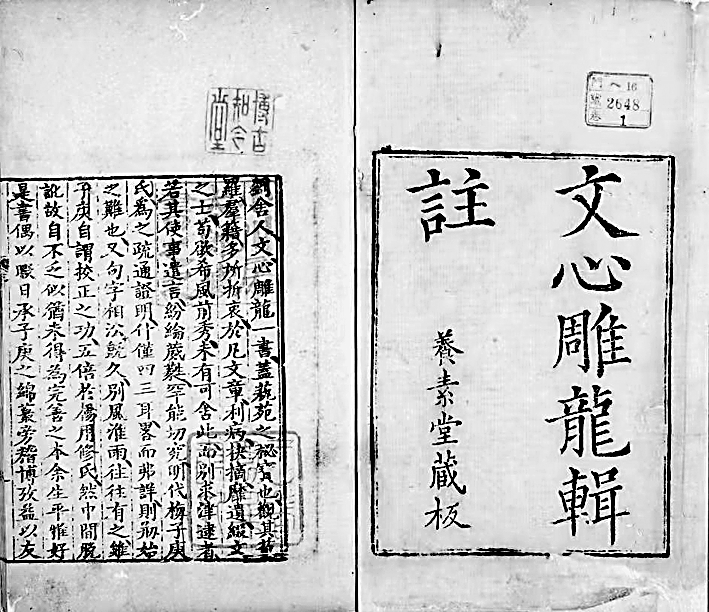 文心雕龍輯
註
養素堂蔵板
門 ヘ 16
號 2648
卷 1
博古
知今
堂
劉舍人文心雕龍一書蓋藝苑之秘寶也觀其苞
羅羣籍多所折衷於凡文章利病抉摘靡遺綴文
之士苟欲希風前秀未有可舍此而別求津逮者
若其使事遣言紛綸葳蕤罕能切究明代梅子庾
氏為之疏通證明什僅四三耳畧而弗詳則刱始
之難也又句字相沿既久別風淮雨往往有之雖
子庾自謂挍正之功五倍於楊用修氏然中間脫
訛故自不乏似猶未得為完善之本余生平雅好
是書偶以暇日承子庾之綿蕞旁稽博攷益以友